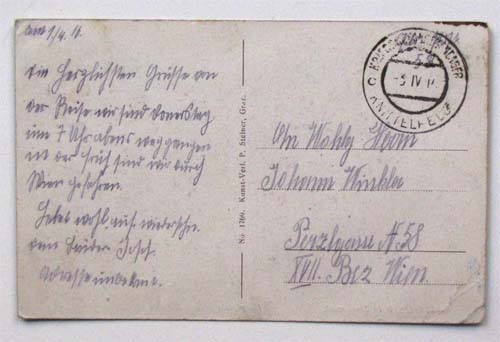 am 5/4. 16.
Die Herzlichsten Grüsse an
der Reise wir sind Donerstag
um 7 Uhr abens weggangen
in der früh sind wir durch
Wien gefahren.
Lebet wohl auf wiedersehn
dein Bruder Josef.
Adresse unbekant.
No. 1769. Kunst-Verl. P. Steiner, Graz.
KNITTELFELD
-5 IV
An Wohlg Herrn
Johann Winkler
Perzlgasse N. 58
XVII. Bez Wien.